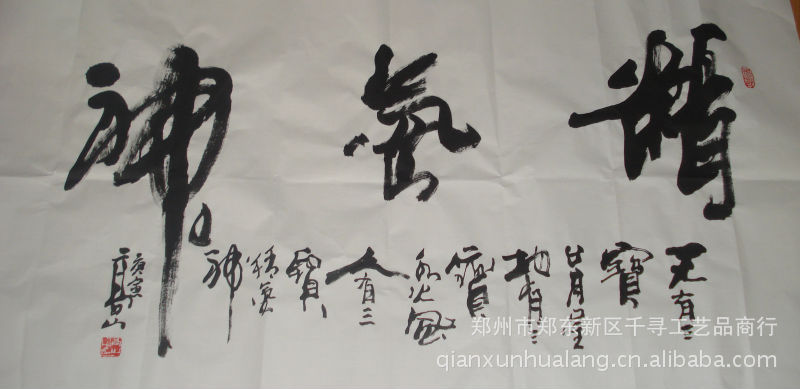 精氣神
天有三
寶
日月星
地有三
寶
水火風
人有三
寶
精氣
神
庚寅
郑州市郑东新区千寻工艺品商行
qianxunhualang.cn.alibaba.com